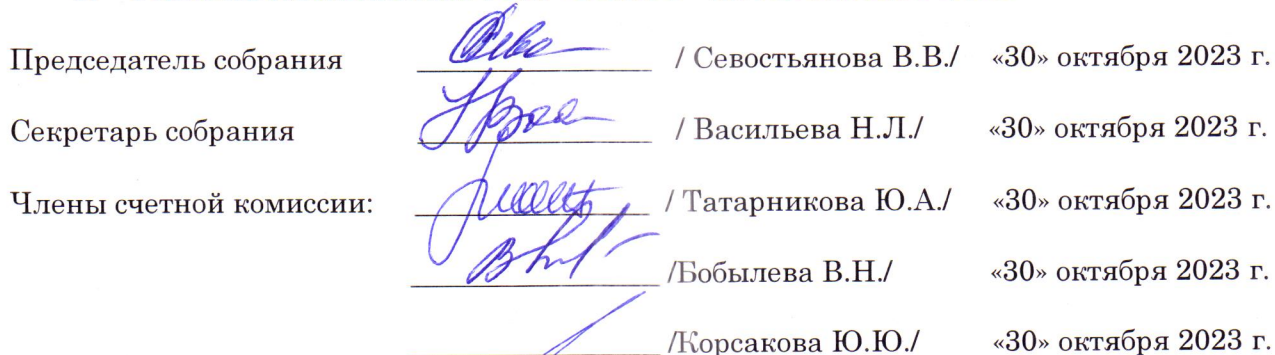 Председатель собрания / Севостьянова В.В./ «30» октября 2023 г.
Секретарь собрания / Васильева Н.Л./ «30» октября 2023 г.
Члены счетной комиссии: / Татарникова Ю.А./ «30» октября 2023 г.
/Бобылева В.Н./ «30» октября 2023 г.
/Корсакова Ю.Ю./ «30» октября 2023 г.